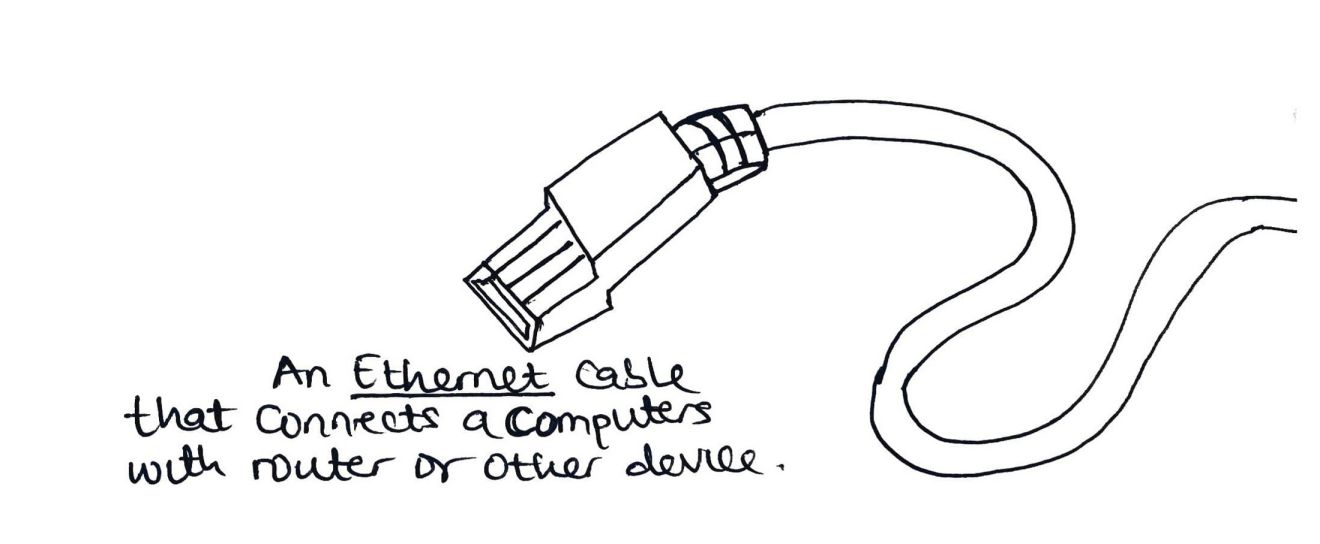 An Ethernet cable
that connects a computers
with router or other device.